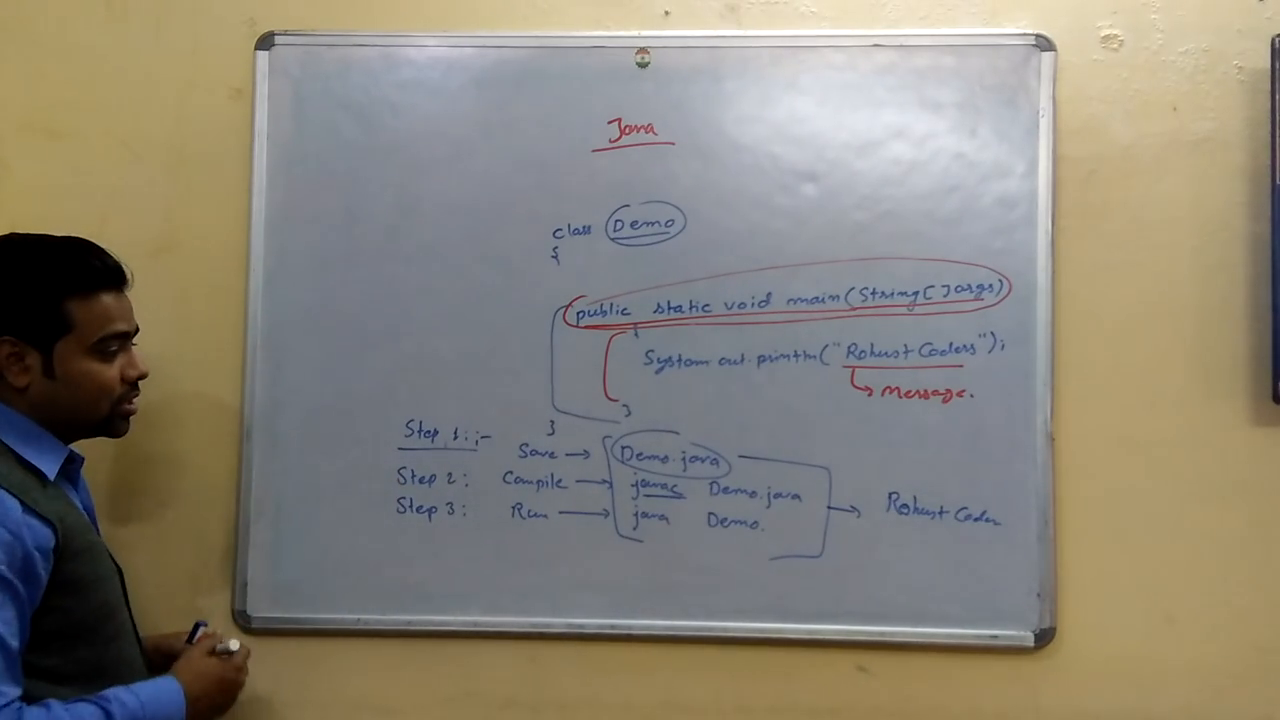 Java
class Demo
{
public static void main(String[]args)
{
System.out.println("Robust Coders");
Message.
}
}
Step 1:;- Save → Demo.java
Step 2: Compile → javac Demo.java
Step 3: Run → java Demo.
→ Robust Coder